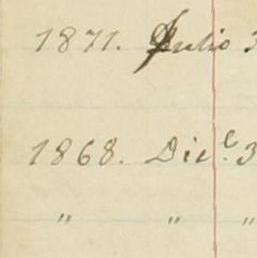 1871. Julio 3
1868. Dic.e 3
" " "